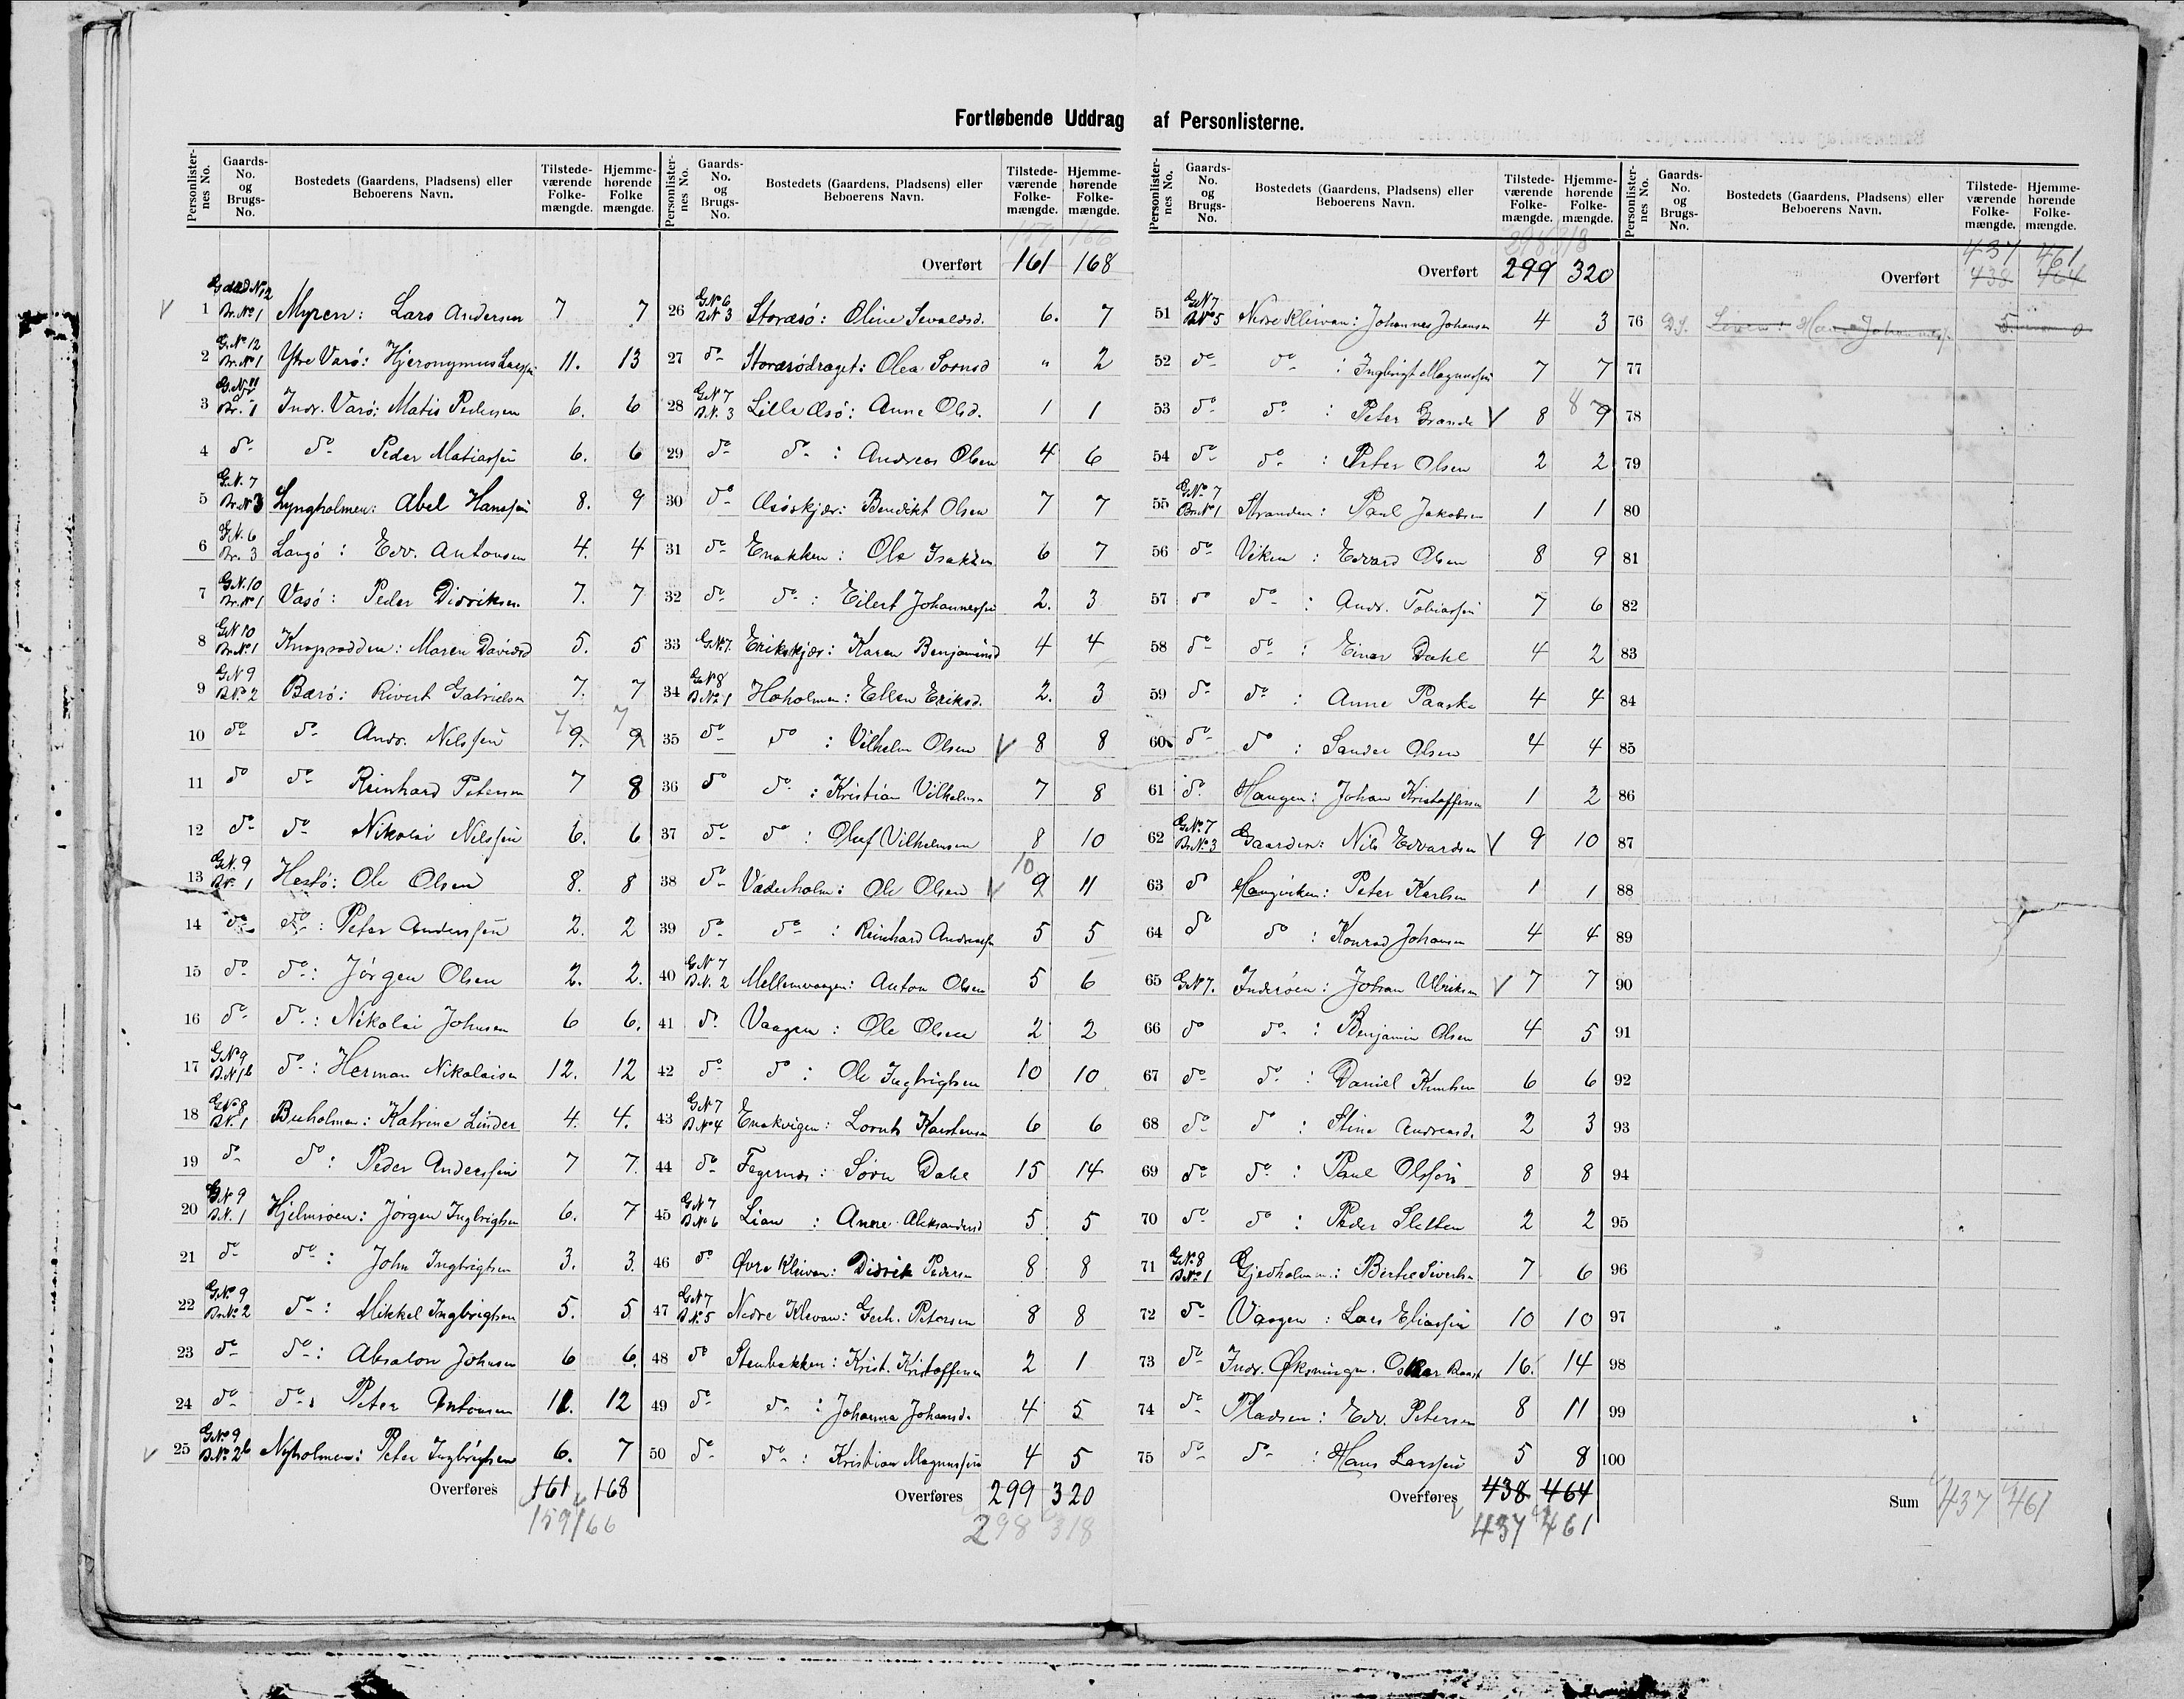 Fortløbende Uddrag af Personlisterne.
Personlisternes No. Gaards-No. og Brugs-No. Bostedets (Gaardens, Pladsens) eller Beboerens Navn. Tilstedeværende Folkemængde. Hjemmehørende Folkemængde.
1 Br. No 1 Myren: Lars Andersen 7 7
2 G. No 12 Br. No 1 Ytre Varø: Hjeronymus 11. 13
3 G. N. 11 Br. 1 Indr. Varø: Matis Pedersen 6. 6
4 do do Peder Matiassen 6. 6
5 G. N. 7 Br. N 3 Lyngholmen: Abel Hanssen 8. 9
6 G. N. 6 Br. 3 Langø: Edv. Antonsen 4. 4
7 G. N. 10 Br. No 1 Vasø: Peder Didriksen 7. 7
8 G N 10 Br. No 1 Knapsodden: Maren Davidsd 5. 5
9 G N 9 B No 2 Bærø: Sivert Gabrielsen 7. 7
10 do do Andr. Nilssen 7 9. 7 9
11 do do Reinhard Petersen 7 8
12 do do Nikolai Nilssen 6. 6
13 G. N. 9 B No 1 Hestø: Ole Olsen 8. 8
14 do do: Peter Anderssen 2. 2
15 do do: Jørgen Olsen 2. 2.
16 do do: Nikolai Johnsen 6 6.
17 G No 9 B. N 1b do: Herman Nikolaisen 12. 12
18 G No 8 B N. 1 Buholmen: Katrine Linder 4. 4.
19 do do: Peder Anderssen 7 7.
20 G N 9 B. N. 1 Hjelmsøen: Jørgen Ingbrigtsen 6. 7
21 do do: John Ingbrigtsen 3. 3.
22 G No 9 Br. No 2 do: Mikkel Ingbrigtsen 5. 5
23 do do: Absalon Johnsen 6 6.
24 do do: Peter Antonsen 11. 12
25 G No 9 B. No 2b Nyholmen: Peter Ingbrigtsen 6. 7
Overføres 161 168
159 166
Personlisternes No. Gaards-No. og Brugs-No. Bostedets (Gaardens, Pladsens) eller Beboerens Navn. Tilstedeværende Folkemængde. Hjemmehørende Folkemængde.
159 166
Overført 161 168
26 G No 6 B N 3 Storæsø: Oline Sevaldsd. 6. 7
27 do Storæsødraget: Olea Sornsd " 2
28 G N 7 B. N. 3 Lille Æsø: Anne Olsd. 1 1
29 do do: Andreas Olsen 4 6
30 do Æsøskjær: Benedikt Olsen 7 7
31 do Enakken: Ole Isaksen 6 7
32 do do: Eilert Johannessen 2. 3
33 G No 7. Erikskjær: Karen Benjaminsd 4 4
34 G No 8 B No 1 Hoholmen: Ellen Eriksd. 2. 3
35 do do: Vilhelm Olsen 8 8
36 do do: Kristian Vilhelmsen 7 8
37 do do: Oluf Vilhelmsen 8 10
38 do Væderholm: Ole Olsen 10 9 11
39 do do: Reinhard Andreassen 5 5
40 G N 7 B N. 2 Mellemvaagen: Anton Olsen 5 6
41 do Vaagen: Ole Olsen 2 2
42 do do: Ole Ingbrigtsen 10 10
43 G N 7 B No 4 Enakvigen: Lornts Karstensen 6 6
44 do Fagernes: Sørn Dahl 15 14
45 G N 7 B No 6 Lian: Anne Aleksandersd 5 5
46 do Øvre Kleivan: Didrik Pedersen 8 8
47 G N 7 B No 5 Nedre Klevan: Gerh. Petersen 8 8
48 do Stenbakken: Krist. Kristoffersen 2 1
49 do do: Johanna Johansd. 4 5
50 do do: Kristian Magnussen 4 5
Overføres 299 320
298 318
Personlisternes No. Gaards-No. og Brugs-No. Bostedets (Gaardens, Pladsens) eller Beboerens Navn. Tilstedeværende Folkemængde. Hjemmehørende Folkemængde.
298 318
Overført 299 320
51 G N 7 B No 5 Nedre Kleivan: Johannes Johansen 4 3
52 do do: Ingbrigt Magnussen 7 7
53 do do: Peter Grande 8 8 9
54 do do: Peter Olsen 2 2
55 G No 7 Br. No 1 Stranden: Paul Jakobsen 1 1
56 do Viken: Edvard Olsen 8 9
57 do do: Andr. Tobiassen 7 6
58 do do: Einar Dahl 4 2
59 do do: Anne Paaske 4 4
60 do do: Sander Olsen 4 4
61 do Haugen: Johan Kristoffersen 1 2
62 G No 7 Br. No 3 Gaarden: Nils Edvardsen 9 10
63 do Haugviken: Peter Karlsen 1 1
64 do do: Konrad Johansen 4 4
65 G No 7. Indrøen: Johan Ulriksen 7 7
66 do do: Benjamin Olsen 4 5
67 do do: Daniel Knudsen 6 6
68 do do: Stine Andreasd. 2 3
69 do do: Paul Olssen 8 8
70 do do: Peder Sletten 2 2
71 G No 8 B No 1 Gjedholmen: Berthe Sivertsen 7 6
72 do Vaagen: Lars Eliassen 10 10
73 do Indr. Øksningen: Oskar 16. 14
74 do Pladsen: Edv. Petersen 8 11
75 do do: Hans Larssen 5 8
Overføres 438 464
437 461
Personlisternes No. Gaards-No. og Brugs-No. Bostedets (Gaardens, Pladsens) eller Beboerens Navn. Tilstedeværende Folkemængde. Hjemmehørende Folkemængde.
437 461
Overført 438 464
76 5 0
77
78
79
80
81
82
83
84
85
86
87
88
89
90
91
92
93
94
95
96
97
98
99
100
Sum 437 461